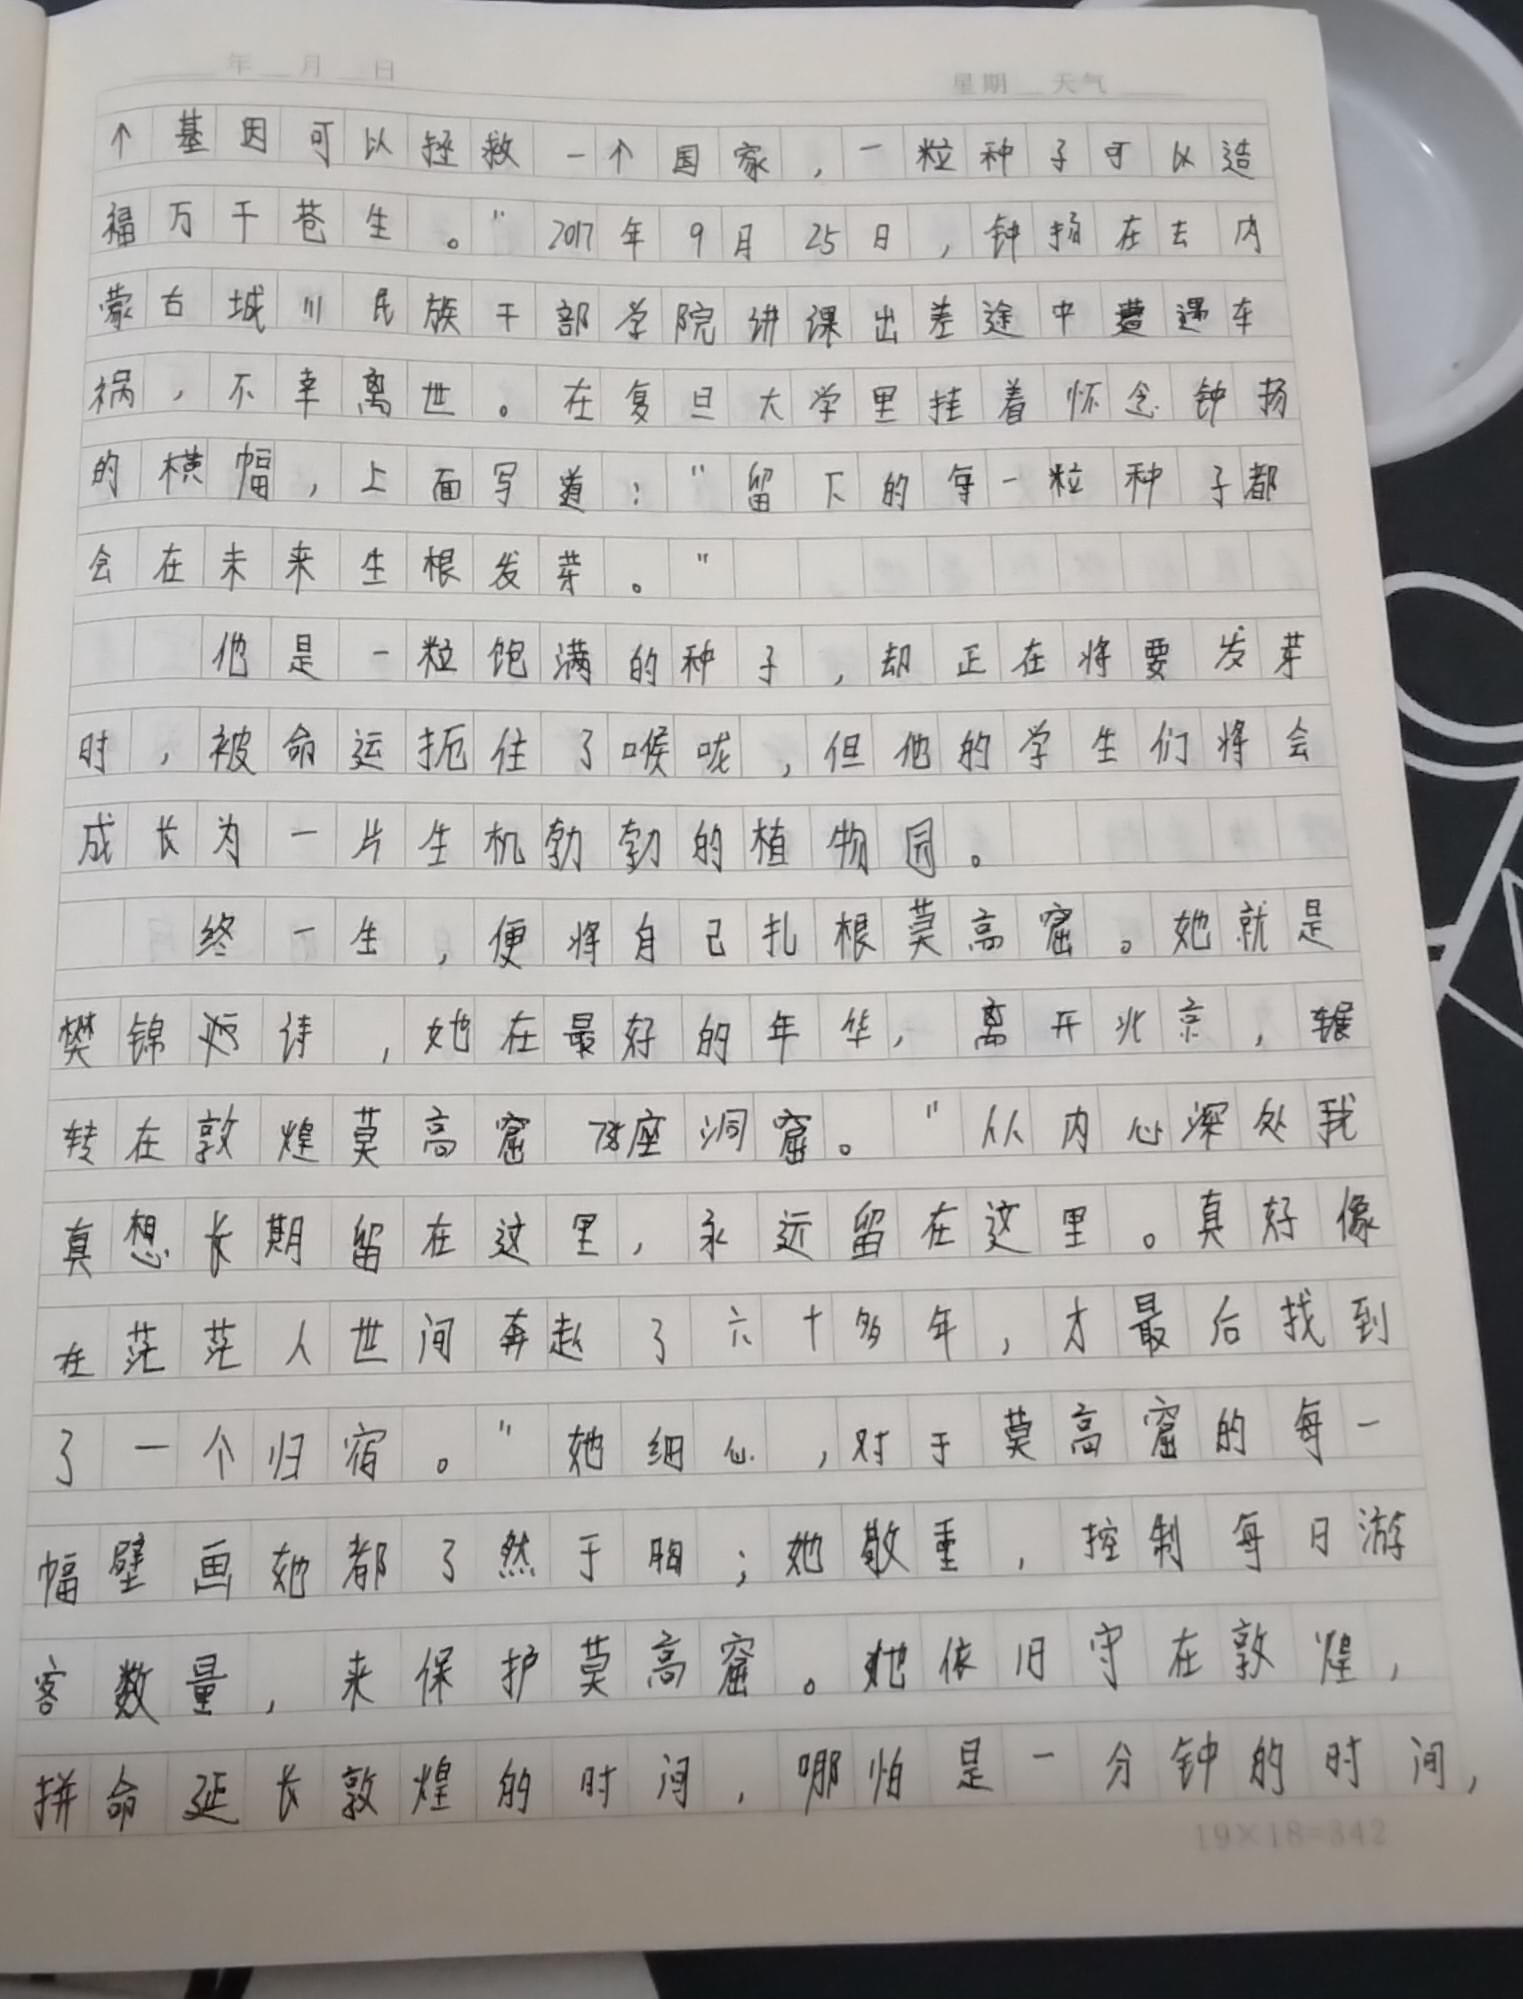 年 月 日
星期 天气
个基因可以拯救一个国家,一粒种子可以造
福万千苍生。"2017年9月25日,钟扬在去内
蒙古城川民族干部学院讲课出差途中遭遇车
祸,不幸离世。在复旦大学里挂着怀念钟扬
的横幅,上面写道:"留下的每一粒种子都
会在未来生根发芽。"
他是一粒饱满的种子,却正在将要发芽
时,被命运扼住了喉咙,但他的学生们将会
成长为一片生机勃勃的植物园。
终一生,便将自己扎根莫高窟。她就是
樊锦诗,她在最好的年华,离开北京,辗
转在敦煌莫高窟 座洞窟。"从内心深处我
真想长期留在这里,永远留在这里。真好像
在茫茫人世间奔赴了六十多年,才最后找到
了一个归宿。"她细心,对于莫高窟的每一
幅壁画她都了然于胸;她敬重,控制每日游
客数量,来保护莫高窟。她依旧守在敦煌,
拼命延长敦煌的时间,哪怕是一分钟的时间,
19×18=342